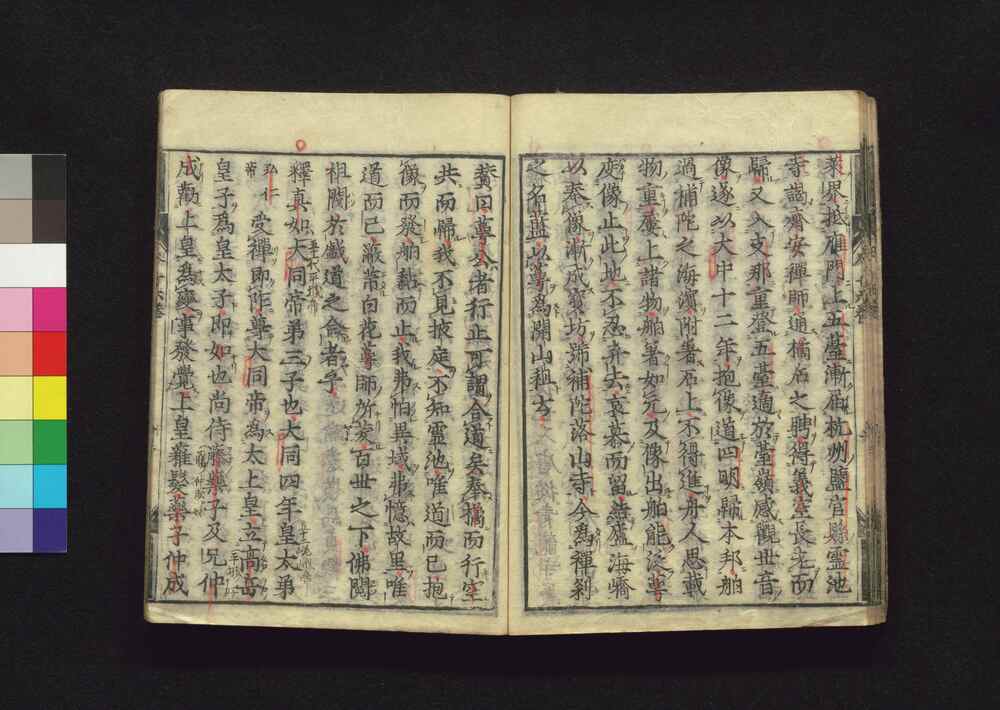 萊界抵雁門上五臺漸届杭州鹽官縣靈池
寺謁齊安禪師通橘后之聘得義空長老而
歸又入支那重登五臺適於臺嶺感觀世音
像遂以大中十二年抱像道四明歸本邦舶
過補陀之海濱附著石上不得進舟人思載
物重屢上諸物舶著如元及像出舶能泛萼
度像止此地不忍弃去哀慕而留結廬海嶠
以奉像漸成寶坊號補陀落山寺今爲禪刹
之名藍以萼爲開山祖云
贊曰萼公者行止可謂合道矣奉橘而行空
共而歸我不見掖庭不知靈池唯道而已抱
像而發舶黏而止我弗怕異域弗憶故里唯
道而已蔽芾白花萼師所憩百世之下佛閥
祖閥於戲道之命者乎
釋真如大同帝第三子也大同四年皇太弟
弘仁帝受禪即阼尊大同帝為太上皇立高岳
皇子爲皇太子即如也尚侍藤藥子及兄仲
成勸上皇爲亂事發覺上皇薙髮藥子仲成